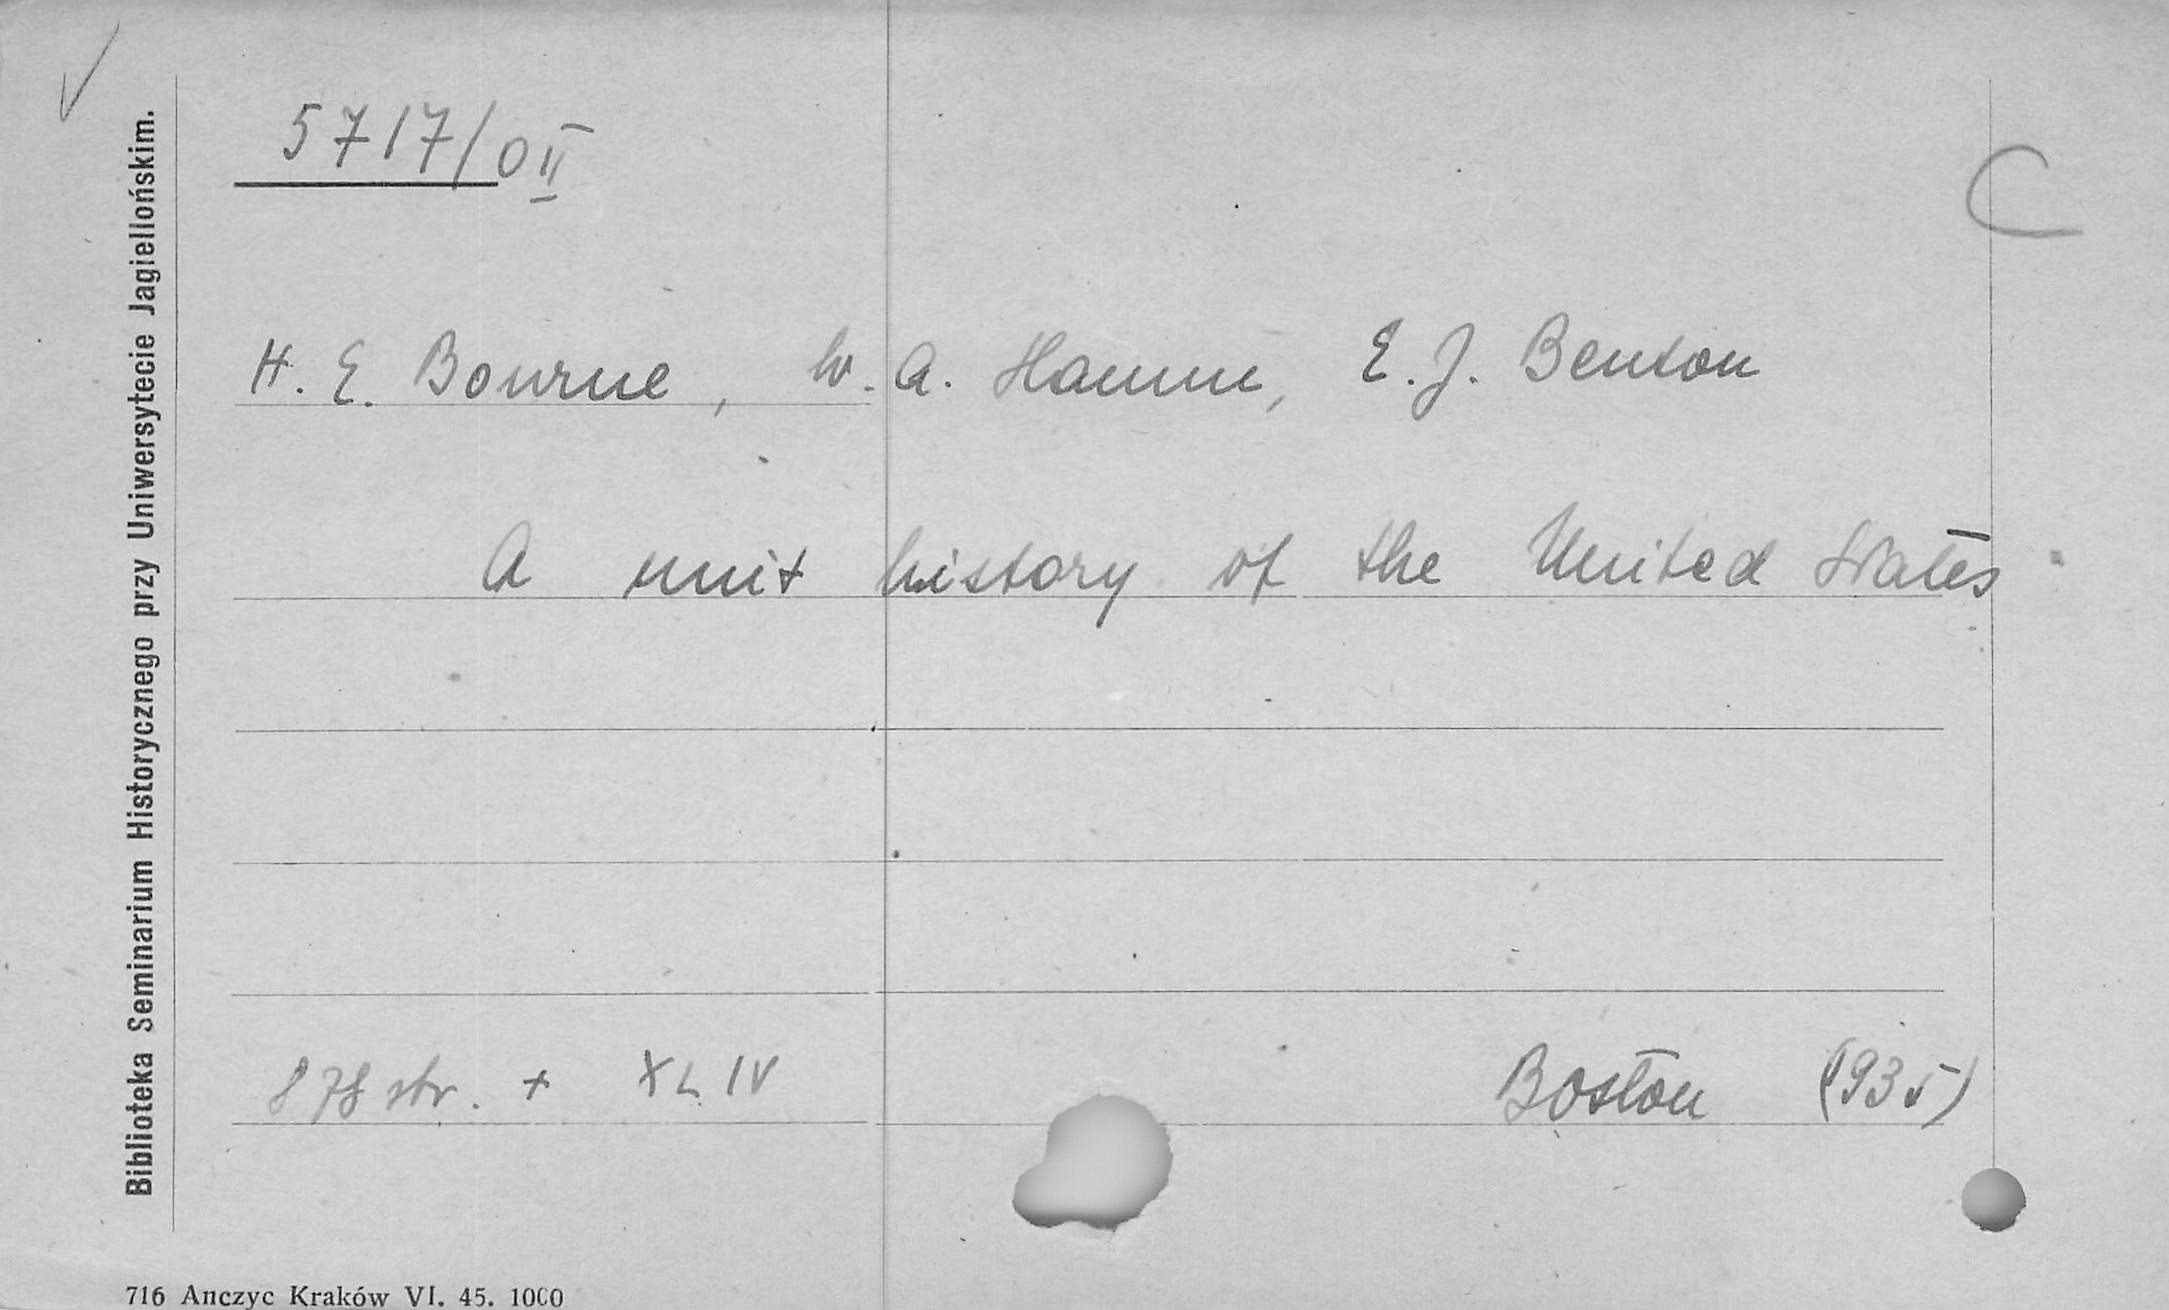 5717/0 II
C
H. E. Bourne, W. A. Hamm, E. J. Benton
A unit history of the United States
878 str. + XLIV
Boston (1935)
Biblioteka Seminarium Historycznego przy Uniwersytecie Jagiellońskim.
716 Anczyc Kraków VI. 45. 1000